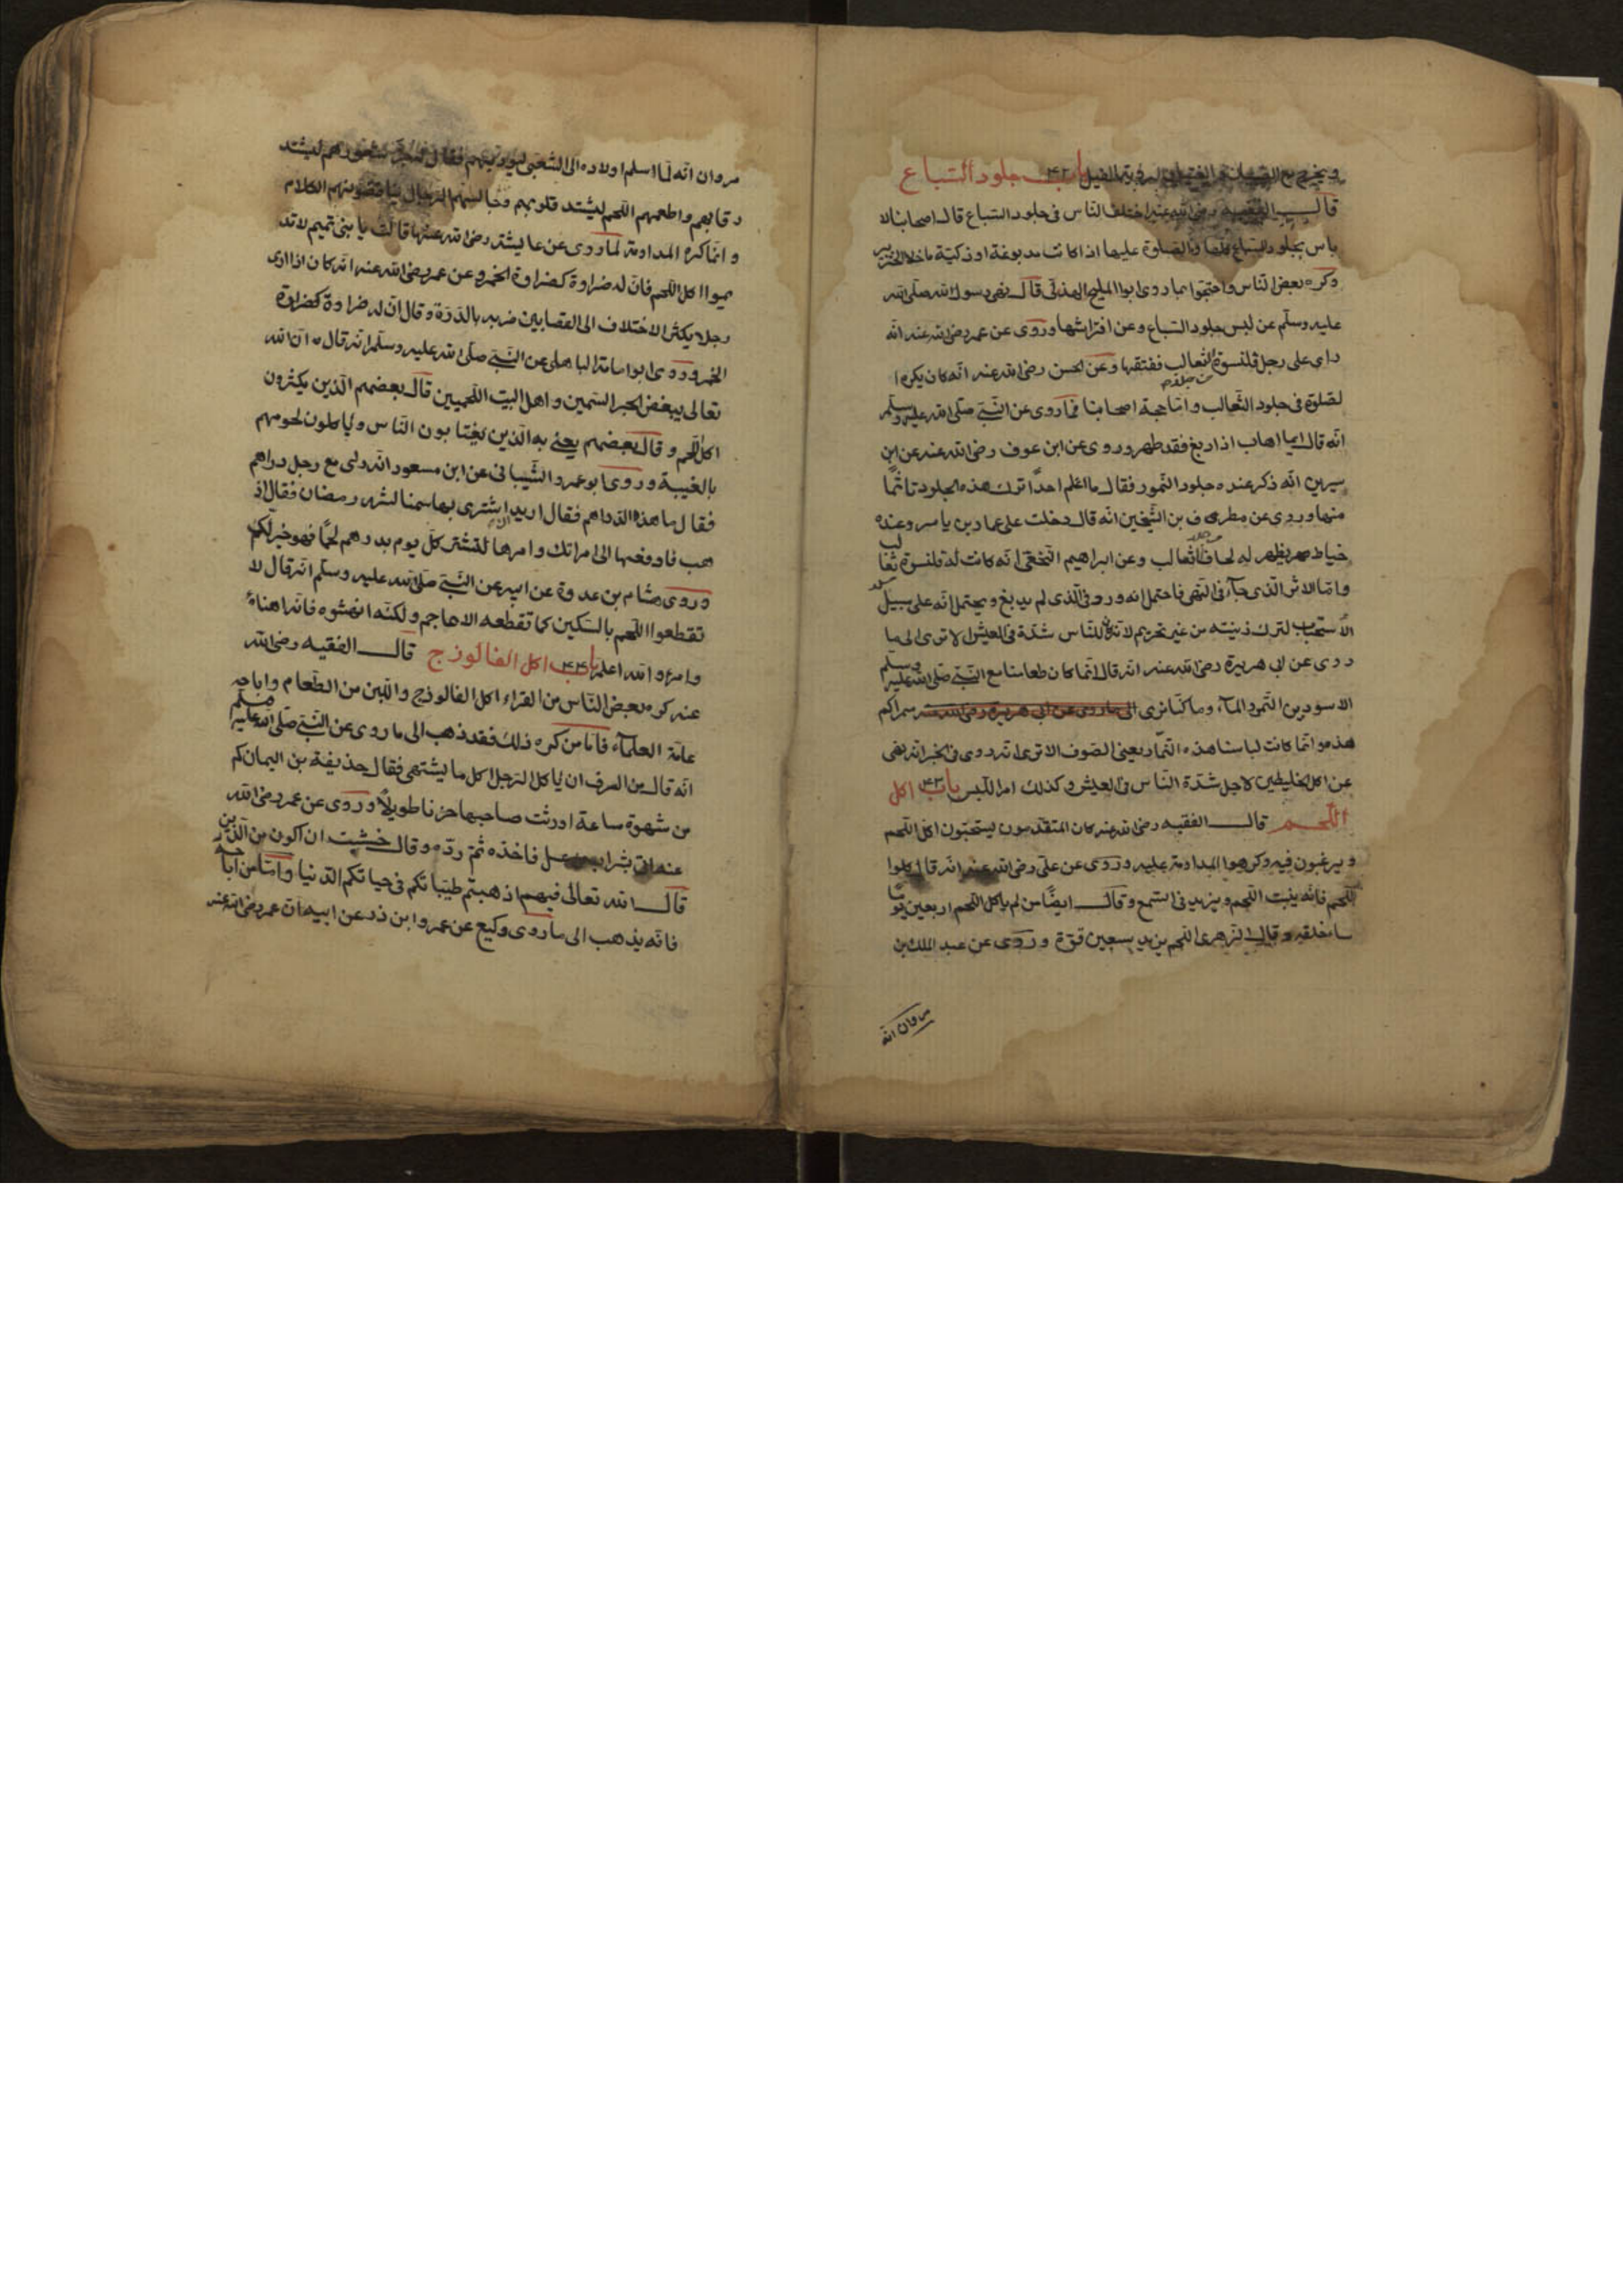 ويخرج مع الصبيان باب ۴۲ جلود السباع
قال الفقيه رضى الله عنه اختلف الناس فى جلود السباع قال اصحابنا لا
باس بجلود السباع والصلوة عليها اذا كانت مدبوغة او ذكية ما خلا الخنزير
وكره بعض الناس واحتجوا بما روى ابوا المليح الهذلى قال نهى رسول الله صلى الله
عليه وسلم عن لبس جلود السباع وعن افتراشها وروى عن عمر رضى الله عنه انه
راى على رجل قلنسوة الثعالب ففتقها وعن الحسن رضى الله عنه انه كان يكره ا
لصلوة فى جلود الثعالب واما حجة اصحابنا فما روى عن النبى صلى الله عليه وسلم
انه قال ايما اهاب اذا دبغ فقد طهر وروى عن ابن عوف رضى الله عنه عن ابن
سيرين انه ذكر عنده جلود النمور فقال ما اعلم احدًا ترك هذه الجلود تاثمًا
منها وروى عن مطرف بن الشخين انه قال دخلت على عمار بن ياسر وعنده
خياط يظهر له لحاف ثعالب وعن ابراهيم النخعى انه كانت له قلنسوة ثعالب
واما الاثر الذى جآء فى النهى فاحتمل انه ورد فى الذى لم يدبغ ويحتمل انه على سبيل
الاستحباب لترك زينته من غير تحريم لانه كان للناس شدة فى العيش الا ترى الى ما
روى عن ابى هريرة رضى الله عنه انه قال انما كان طعامنا مع النبى صلى الله عليه وسلم
الاسودين التمر والمآء وما كنا نرى الى ما روى عن ابى هريرة رضى الله عنه سمراكم
هذه وانما كانت لباسنا هذه النمار يعنى الصوف الا ترى انه روى فى الخبر انه نهى
عن اكل الخليطين لاجل شدة الناس فى العيش وكذلك امر اللبس باب ۴۳ اكل
اللحم قال الفقيه رضى الله عنه كان المتقدمون يستحبون اكل اللحم
ويرغبون فيه وكرهوا المداومة عليه وروى عن على رضى الله عنه انه قال كلوا
اللحم فانه ينبت اللحم ويزيد فى السمع وقال ايضًا من لم ياكل اللحم اربعين يومًا
سا خلقه وقال الزهرى اللحم يزيد سبعين قوة وروى عن عبد الملك بن
مروان انه
مروان انه لما اسلم اولاده الى الشعبى ليوديهم فقال شعورهم ليشتد
رقابهم واطعمهم اللحم ليشتد قلوبهم وجالسهم الرجال الكلام
وانما كره المداومة لما روى عن عايشة رضى الله عنها قالت يا بنى تميم لا تد
يموا اكل اللحم فان له ضراوة كضراوة الخمر وعن عمر رضى الله عنه انه كان اذا راى
رجلا يكثر الاختلاف الى القصابين ضربه بالدرة وقال ان له ضراوة كضراوة
الخمر وروى ابوا سامة الباهلى عن النبى صلى الله عليه وسلم انه قال ان الله
تعالى يبغض الحبر السمين واهل البيت اللحميين قال بعضهم الذين يكثرون
اكل اللحم وقال بعضهم يعنى به الذين يغتابون الناس وياكلون لحومهم
بالغيبة وروى ابو عمرو الشيبانى عن ابن مسعود انه راى مع رجل دراهم
فقال ما هذه الدراهم فقال اريد ان اشترى بها سمنا لشهر رمضان فقال اذ
هب فادفعها الى امراتك وامرها لتشتر كل يوم بدرهم لحمًا فهو خير لكم
وروى هشام بن عدوة عن ابيه عن النبى صلى الله عليه وسلم انه قال لا
تقطعوا اللحم بالسكين كما تقطعه الاعاجم ولكنه انهشوه فانه اهناهٔ
وامرؤ والله اعلم باب ۴۴ اكل الفالوزج قال الفقيه رضى الله
عنه كره بعض الناس من القراء اكل الفالوزج واللين من الطعام واباحه
عامة العلمآء فاما من كره ذلك فقد ذهب الى ما روى عن النبى صلى الله عليه وسلم
انه قال من السرف ان ياكل الرجل كل ما يشتهى فقال حذيفة بن اليمان كم
من شهوة ساعة اورثت صاحبها حزنا طويلًا وروى عن عمر رضى الله
عنه اتى بشراب عسل فاخذه ثم رده وقال خشيت ان اكون من الذين
قال الله تعالى فيهم اذهبتم طيباتكم فى حياتكم الدنيا واما من اباحه
فانه يذهب الى ما روى وكيع عن عمر وابن ذر عن ابيه ان عمر رضى الله عنه